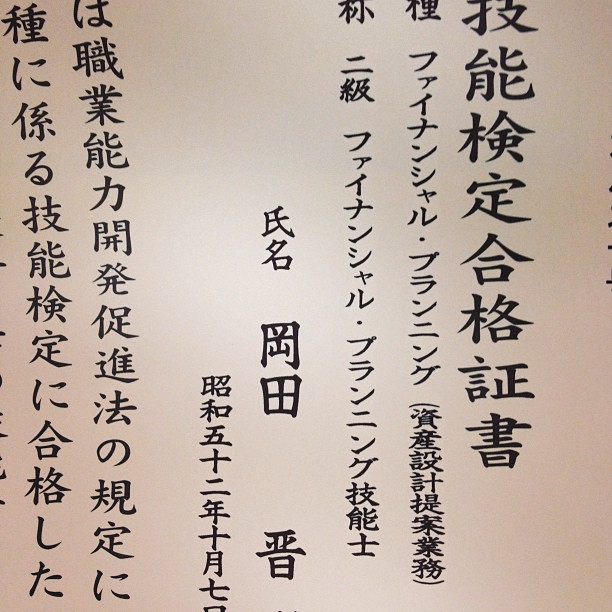 技能検定合格証書
種 ファイナンシャル・プランニング(資産設計提案業務)
称 二級 ファイナンシャル・プランニング技能士
氏名 岡田 晋
昭和五十二年十月七日
は職業能力開発促進法の規定に
種に係る技能検定に合格した